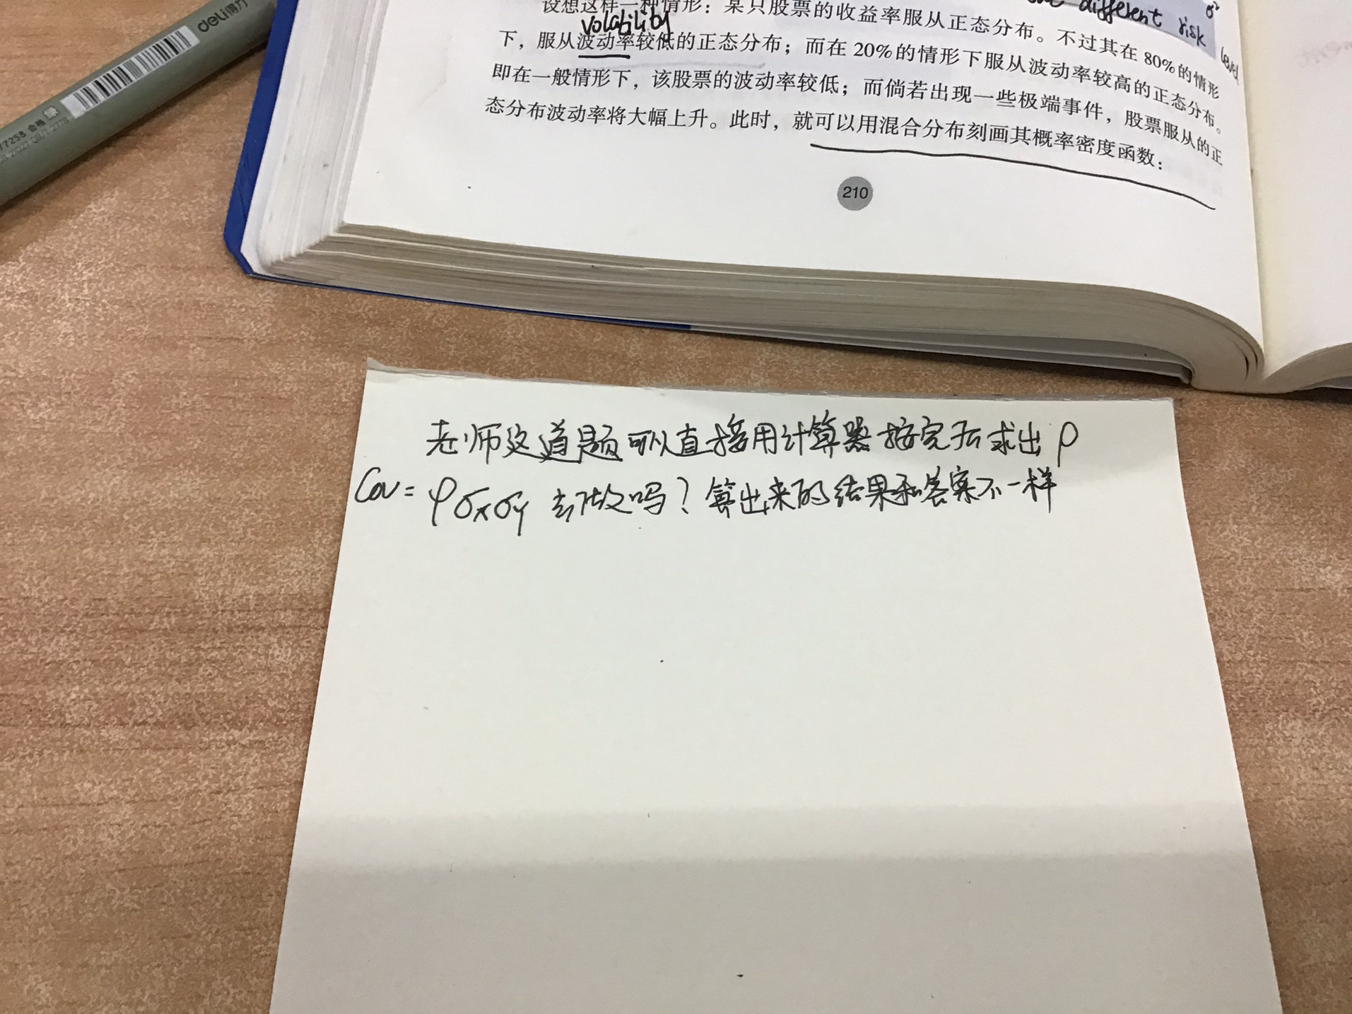 deli得力
different risk level
σ²
设想这样一种情形：某只股票的收益率服从正态分布。不过其在 80%的情形
volability
下，服从波动率较低的正态分布；而在 20%的情形下服从波动率较高的正态分布。
即在一般情形下，该股票的波动率较低；而倘若出现一些极端事件，股票服从的正
态分布波动率将大幅上升。此时，就可以用混合分布刻画其概率密度函数：
210
老师这道题可以直接用计算器按完后求出 ρ
Cov = ρσxσy 去做吗？算出来的结果和答案不一样